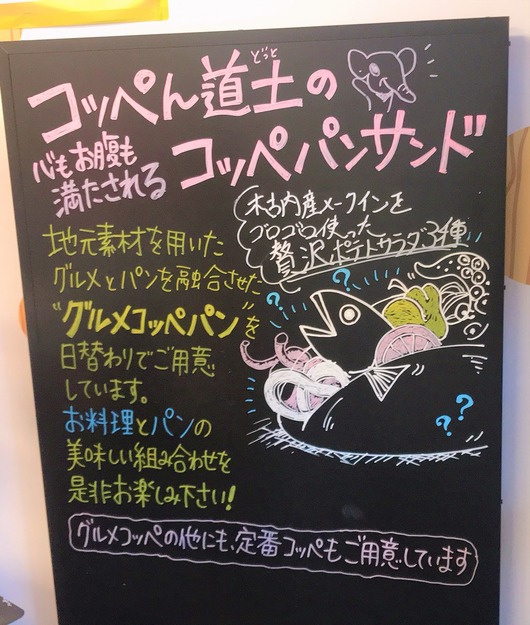 コッペん道土の
どっと
心もお腹も
満たされる
コッペパンサンド
木古内産メークインを
ゴロゴロ使った
贅沢ポテトサラダ3種
地元素材を用いた
グルメとパンを融合させた
"グルメコッペパン"を
日替わりでご用意
しています。
お料理とパンの
美味しい組み合わせを
是非お楽しみ下さい!
?
?
?
?
グルメコッペの他にも、定番コッペもご用意しています